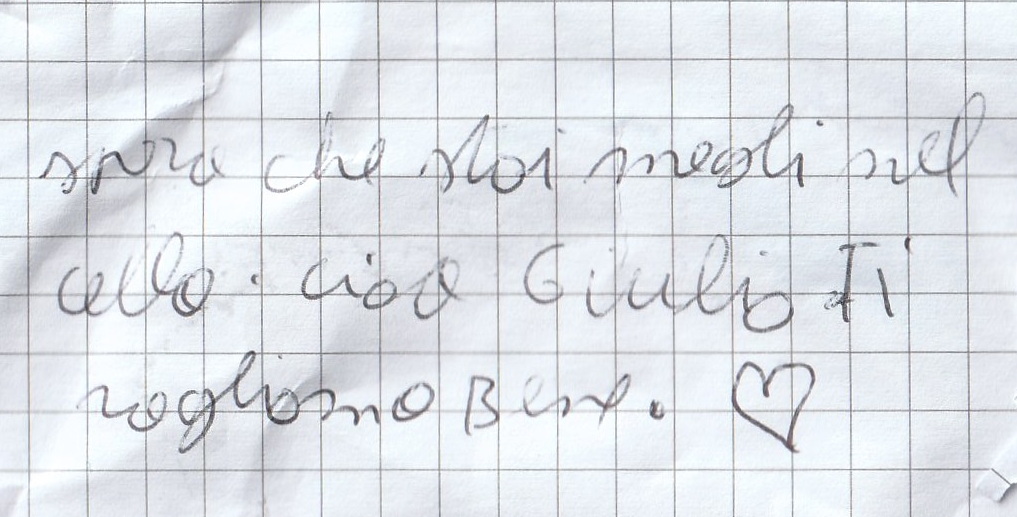 spero che stai megli nel
cello. ciao Giulio Ti
vogliamo Bene.